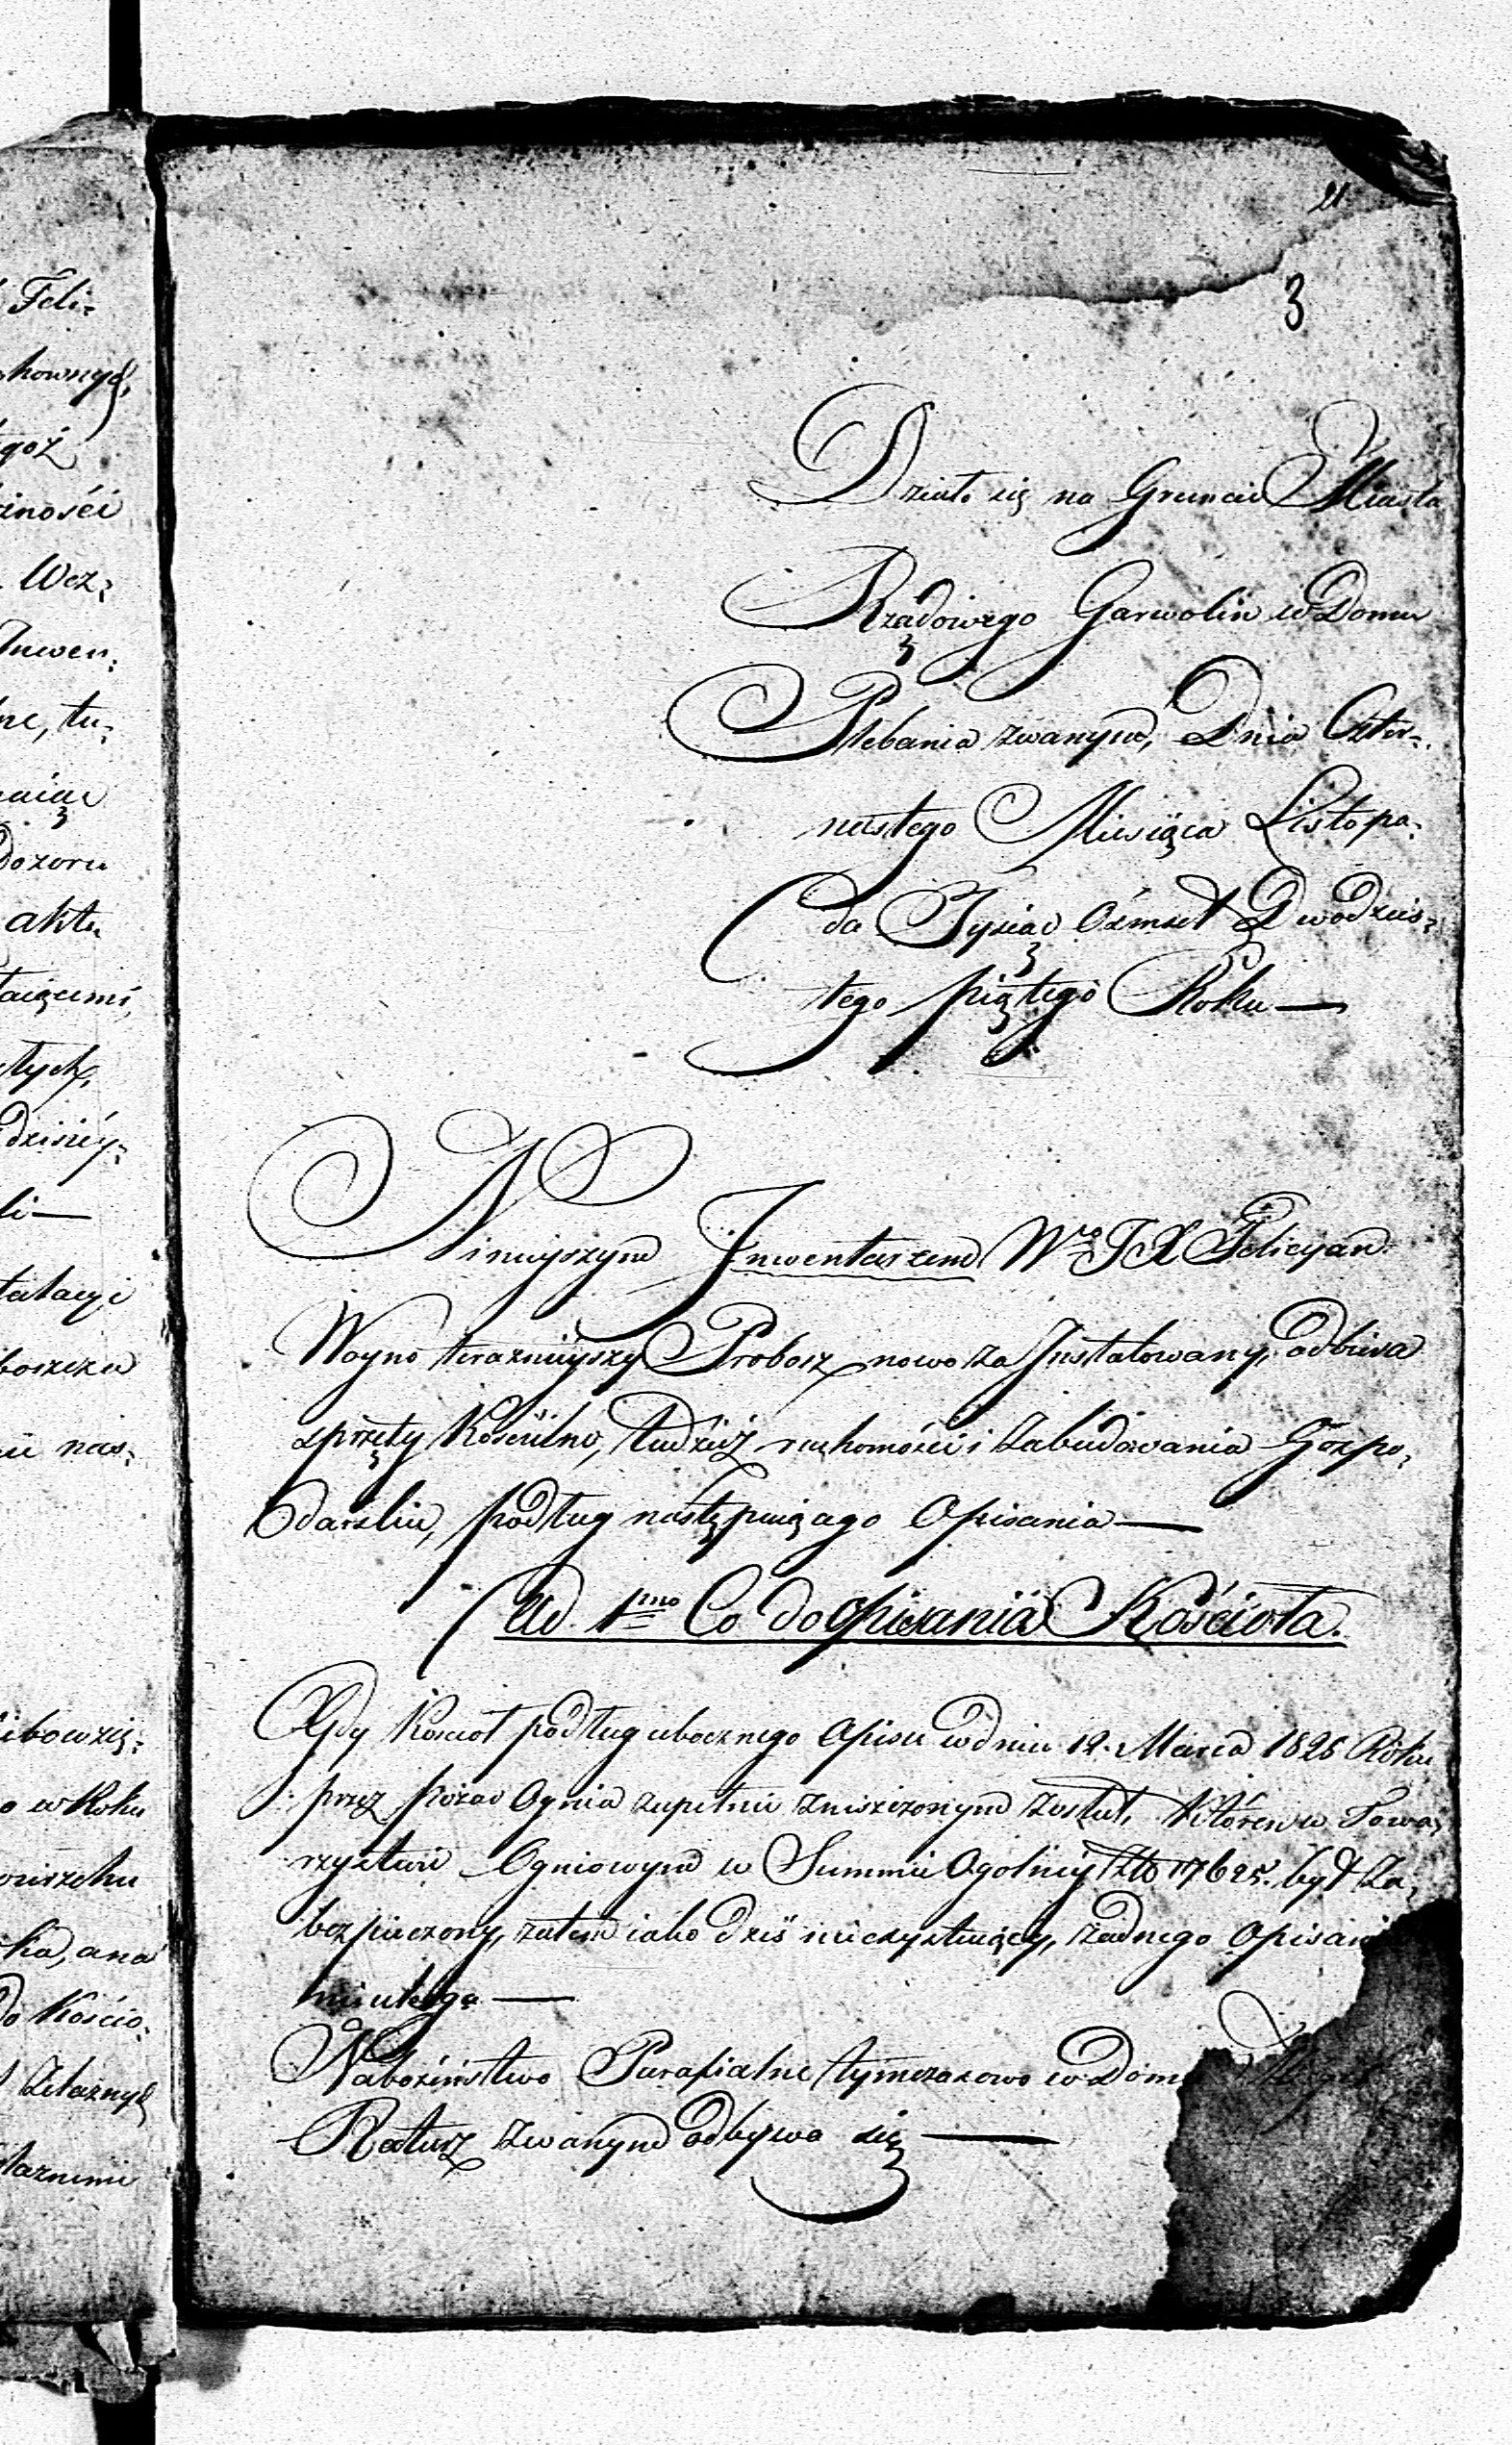 3
Feli-
hownych,
goż
żności
Wez-
Inwen-
ne, tu-
aiąc
Dozoru
aktu
taiącemi,
tych,
dzisiey-
li —
talacyi
boszcza
nas-
w Roku
ka, ana
do Kościo-
Żelaznych
Działo się na Gruncie Miasta
Rządowego Garwolin w Domu
Plebania zwanym, Dnia Czter-
nastego Miesiąca Listopa-
da Tysiąc Ośmset Dwodzies-
tego piątego Roku —
Ninieyszym Inwentarzem Wny JX Felicyan
Woyno teraznieyszy Probosz nowo za Instalowany, odbiera
sprzęty Kościelne, tudzież ruchomości i Zabudowania Gospo-
darskie, podług następuiącago Opisania —
Ad. 1mo Co do opisania Kościoła.
Gdy Kościoł podług ubocznego Opisu w dniu 12. Marca 1825 Roku
przez pożar Ognia zupełnie zniszczonym został, Któren w Towa-
rzystwie Ogniowym w Summie Ogolney Złp 17625. był Za-
bezpieczony, zatem iako dziś nieexystuiący, żadnego Opisani
nieulega —
Nabożeństwo Parafialne tymczasowo w Dom
Ratusz zwanym odbywa się —